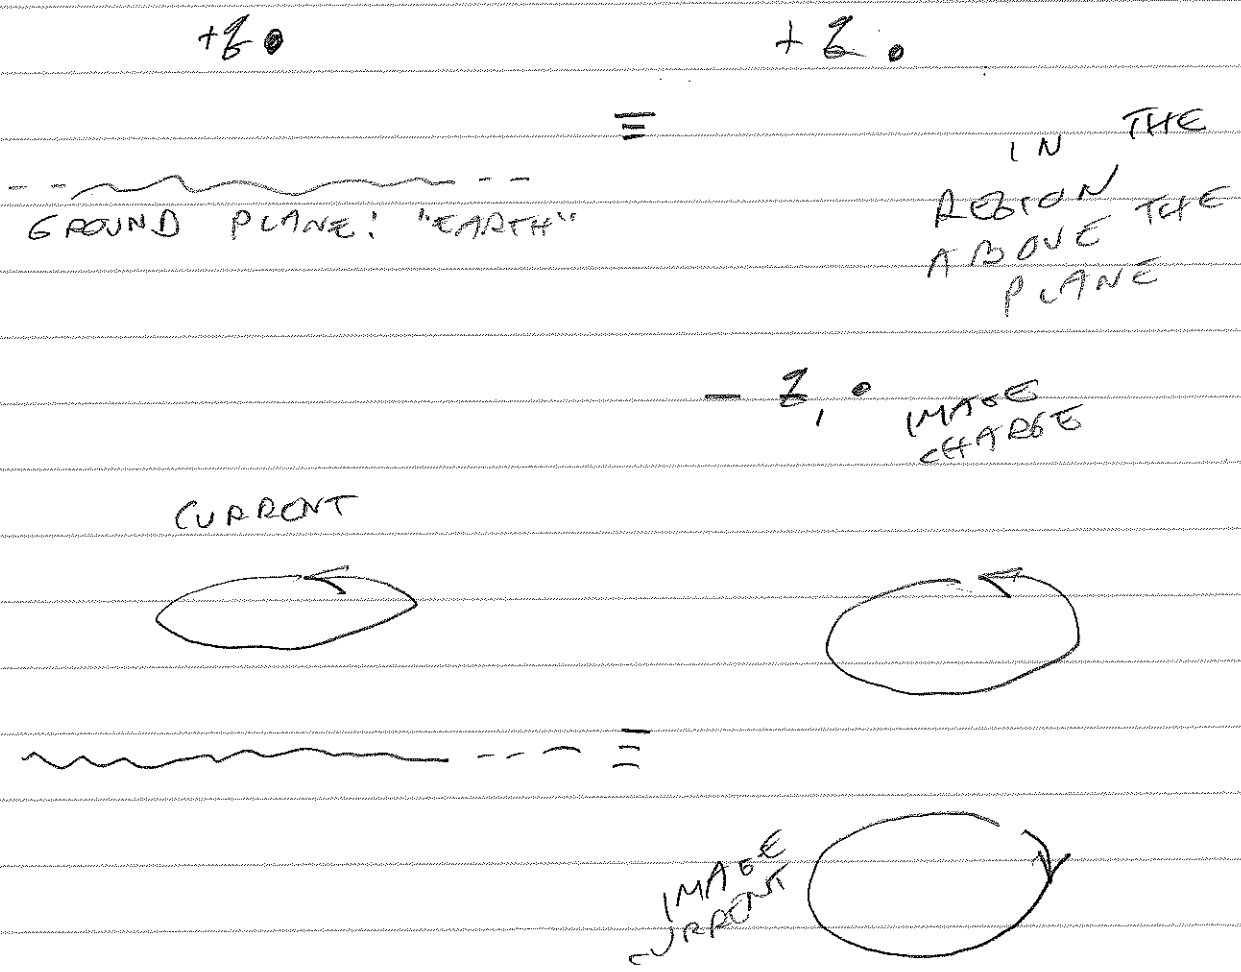 +q
+q
≡
IN THE
REGION
ABOVE THE
PLANE
GROUND PLANE: "EARTH"
- q,
IMAGE
CHARGE
CURRENT
≡
IMAGE
CURRENT